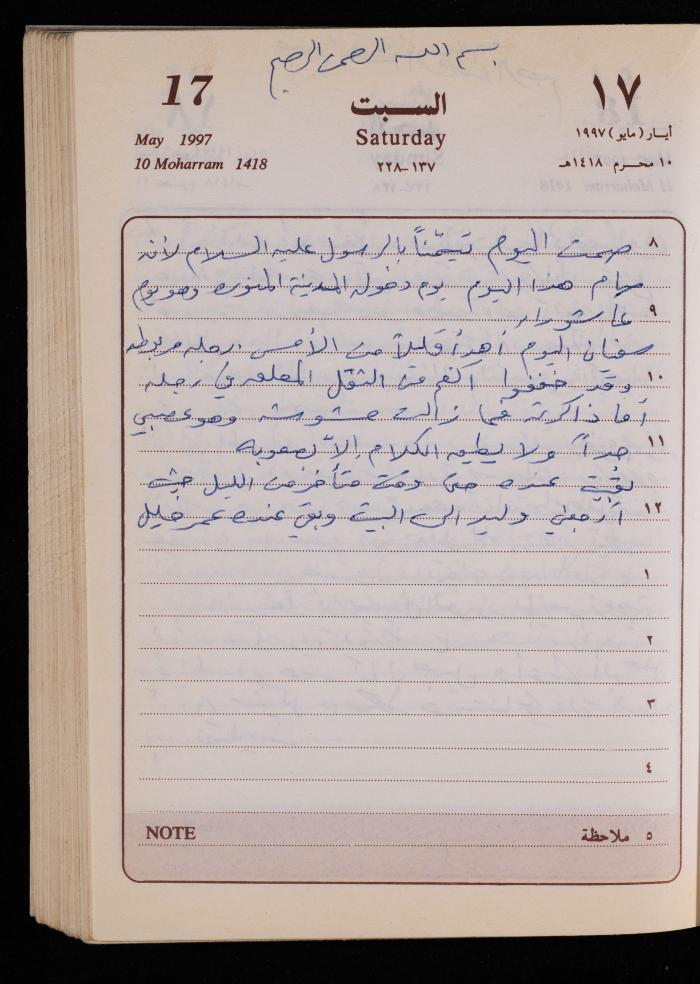 بسم الله الرحمن الرحيم
17
السبت
١٧
May 1997
Saturday
أيـار (مايو) ١٩٩٧
10 Moharram 1418
١٣٧-٢٢٨
١٠ محـرم ١٤١٨هـ
٨ صمت اليوم تيمّناً بالرسول عليه السلام لأنه
صام هذا اليوم يوم دخوله المدينة المنوره وهو يوم
٩ عاشوراء
سفيان اليوم أهدأ قليلاً من الأمس. رجله مربوطه
١٠ وقد خففوا من الثقل المعلق في رجله
أما ذاكرته فما زالت مشوشه وهو عصبي
١١ جداً ولا يطيق الكلام إلاّ بصعوبه
بقيت عنده حتى وقت متأخر من الليل حيث
١٢ أرجعني وليد الى البيت وبقي عنده عمر خليل
١
٢
٣
٤
NOTE
٥ ملاحظة